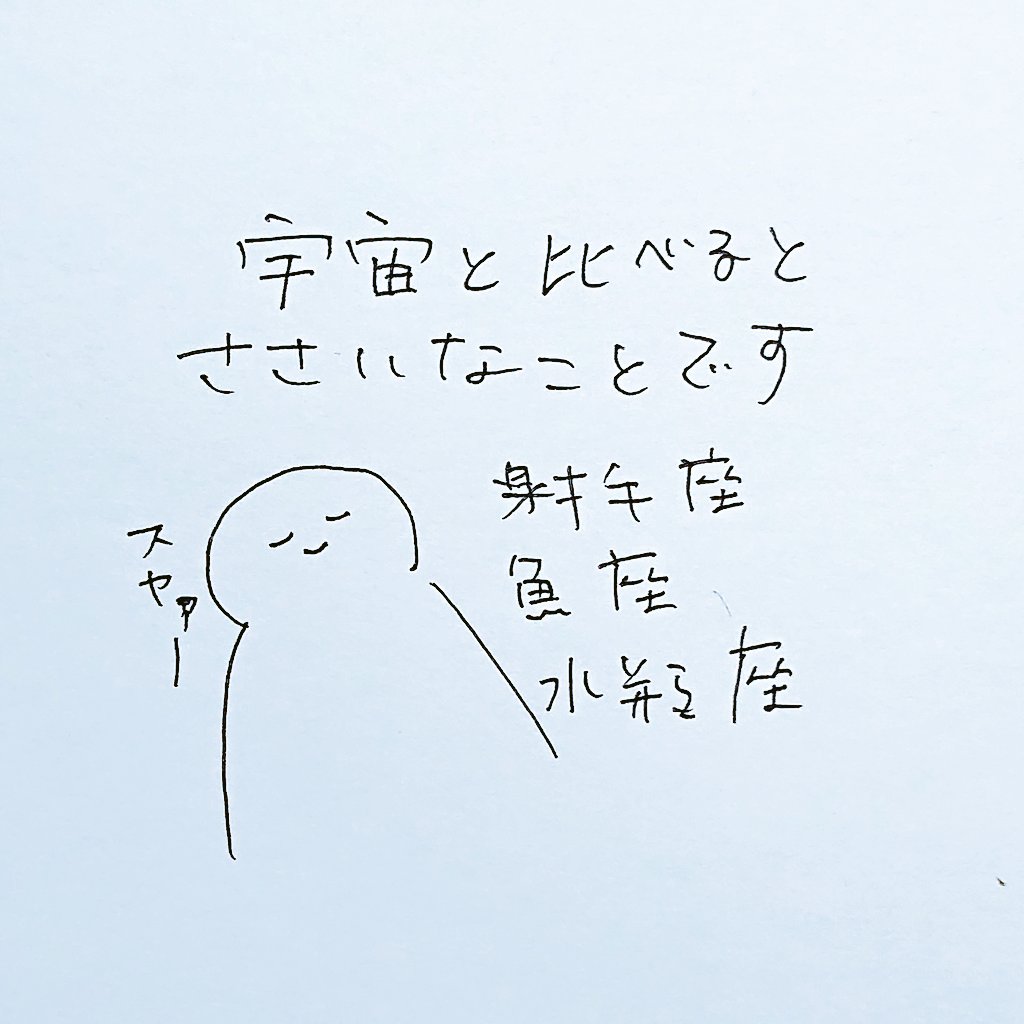 宇宙と比べると
ささいなことです
射手座
魚座
水瓶座
スヤァー